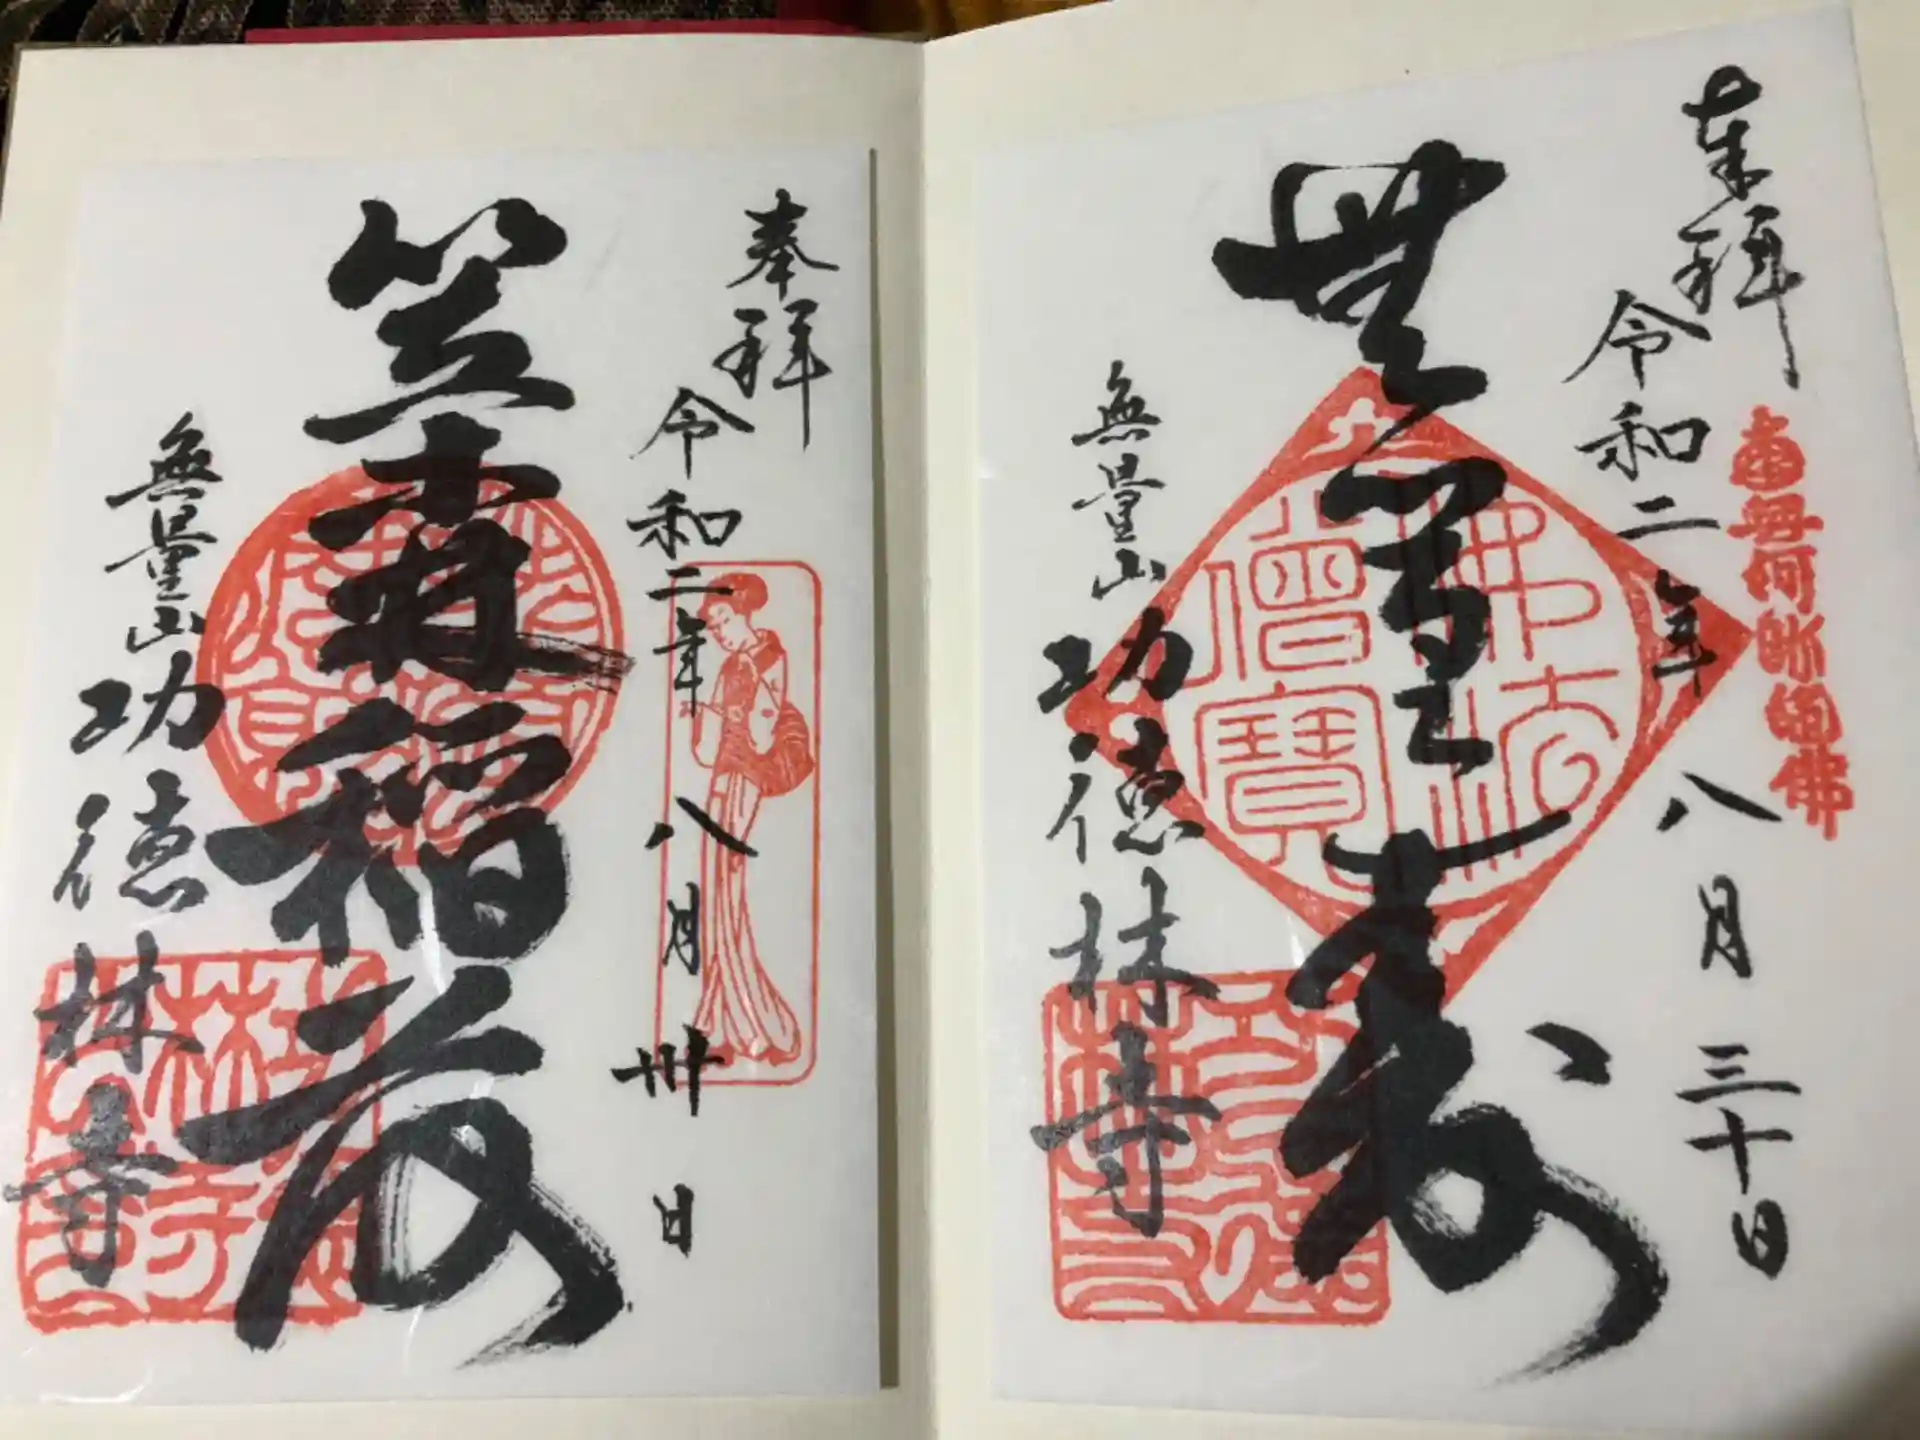 奉拝
南無阿弥陀佛
令和二年八月三十日
無量寿
佛法僧寶
無量山
功徳林寺
奉拝
令和二年八月卅日
笠森稲荷
無量山
功徳林寺